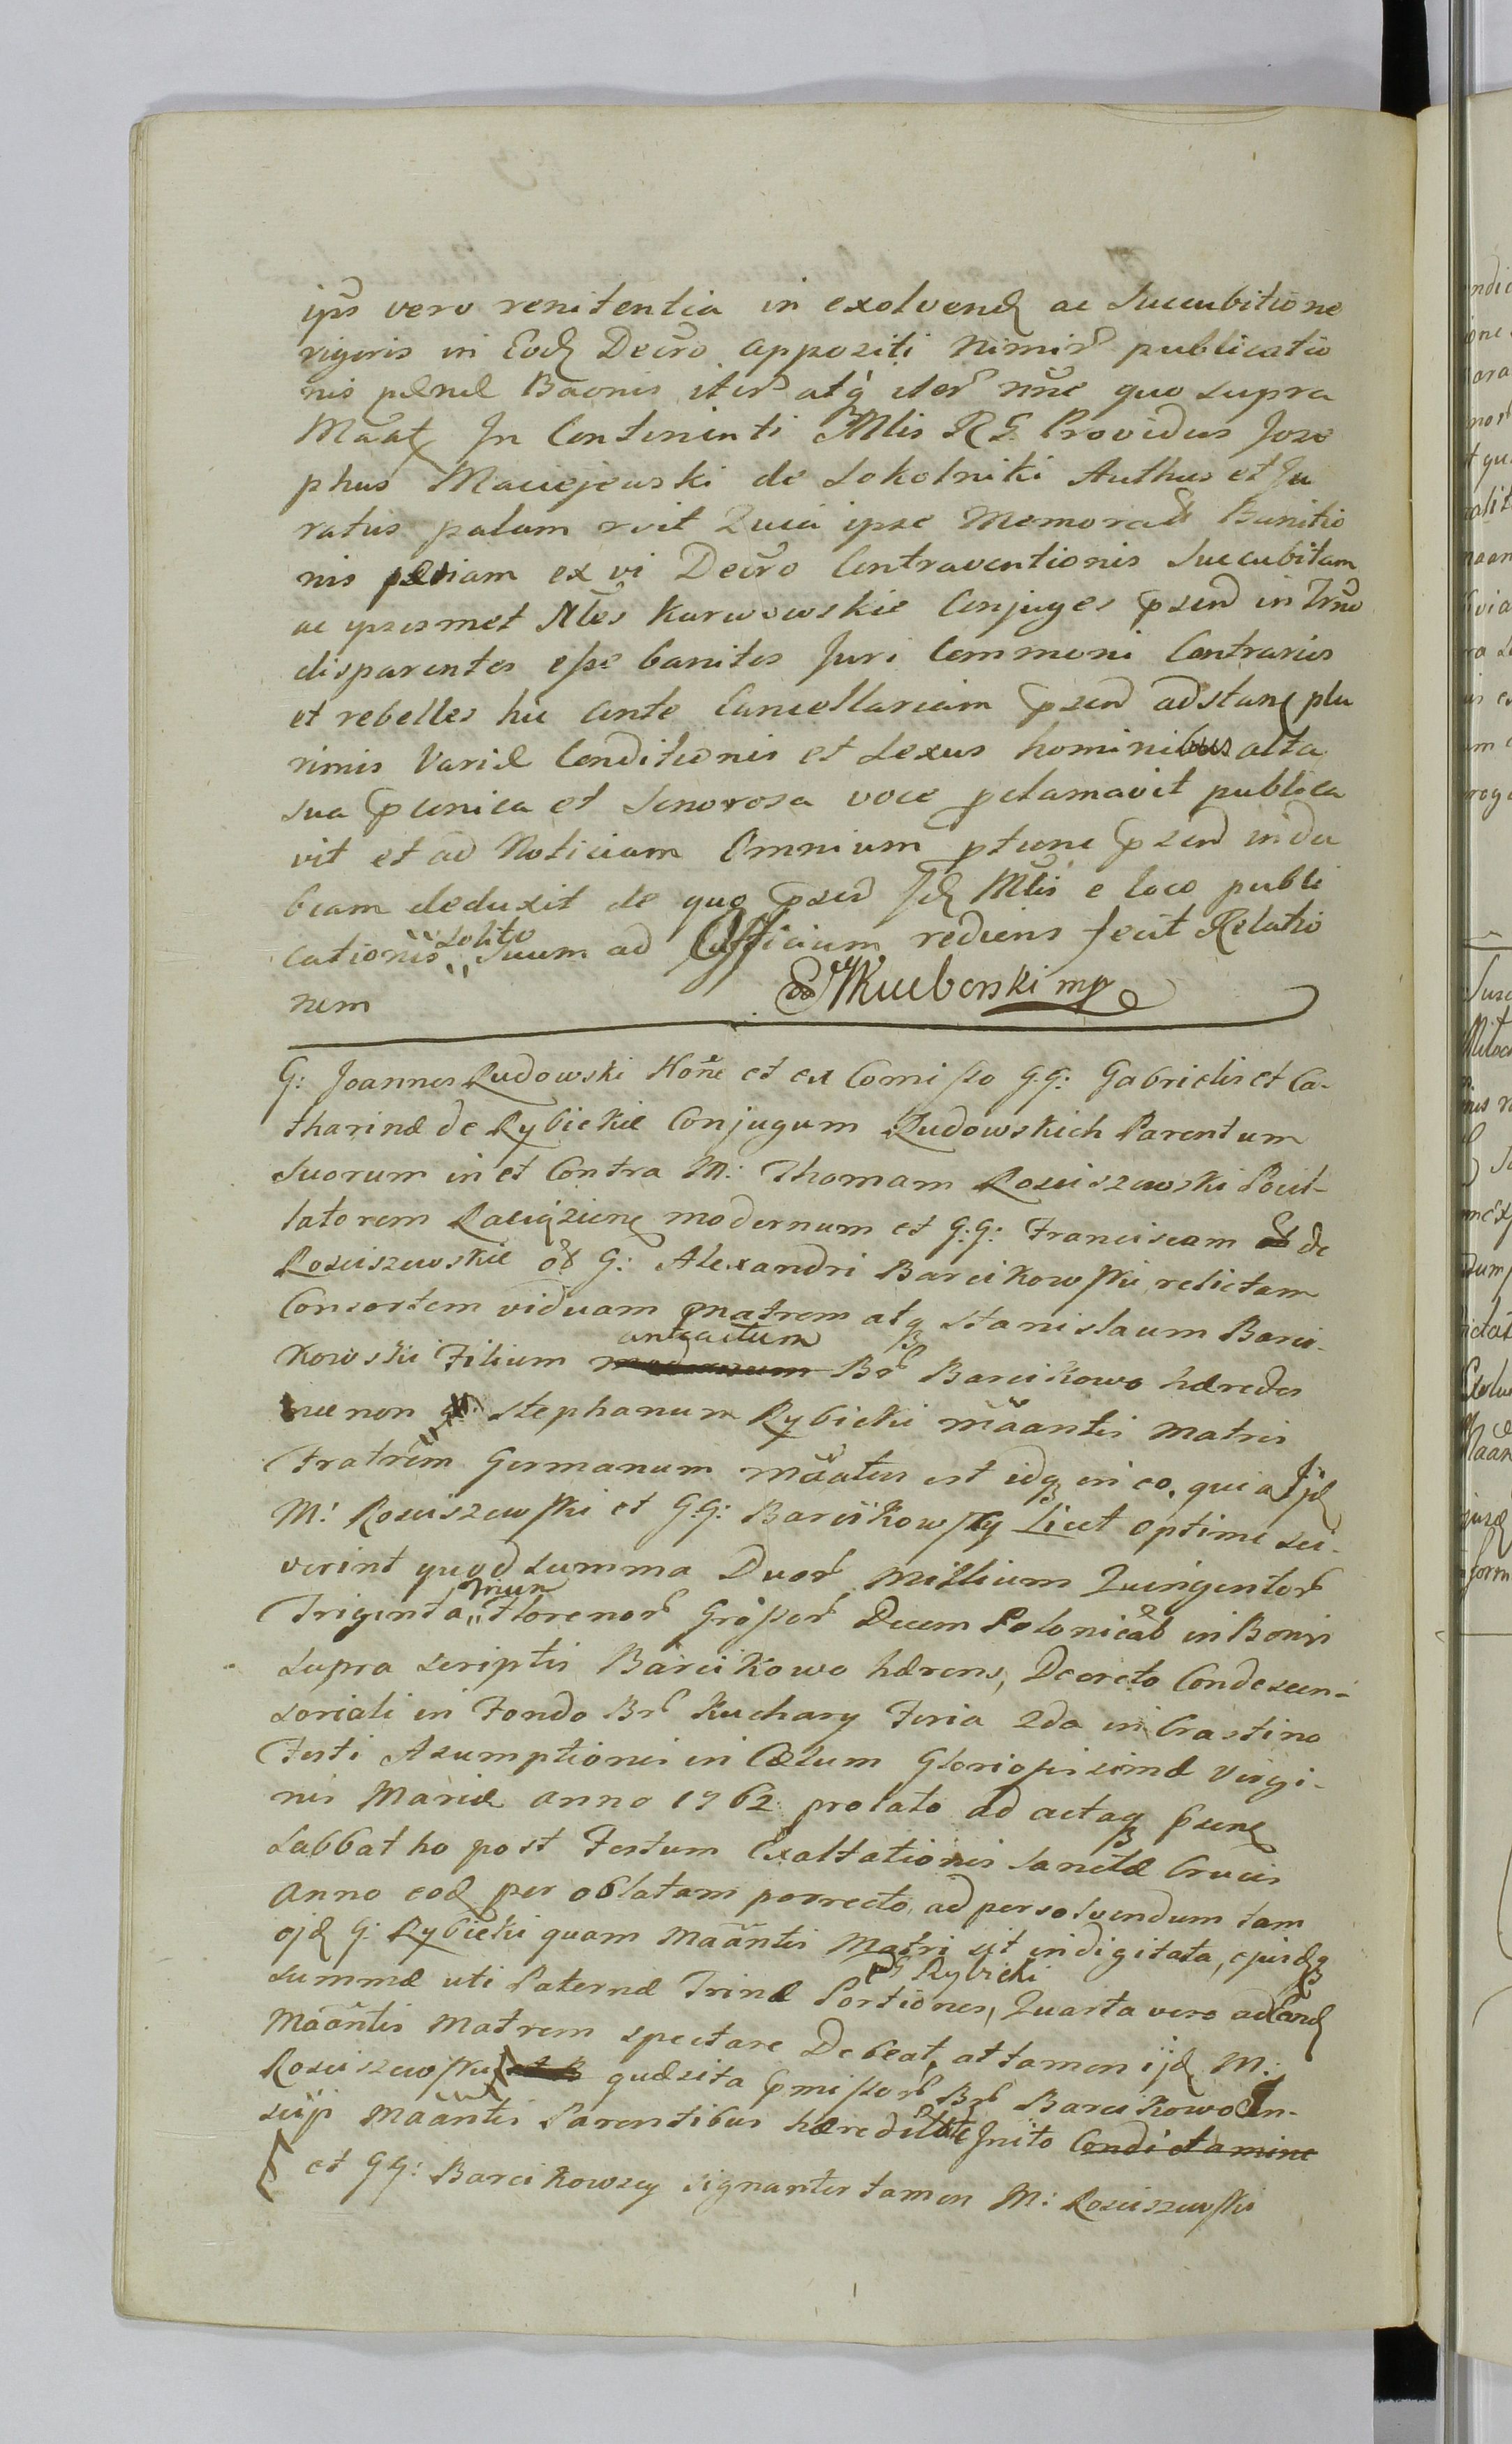 ips vero renitentia in exolvend ac Succubitione
rigoris in Eod Decro appositi nimir publicatio
nis pænæ Baonis iter atq iter nnc quo supra
Maat In Continenti Mlis R G Providus Jose
phus Maciejewski de Sokolniki Authus et Ju
ratus palam rvit Quia ipse Memorat Banitio
nis pænam ex vi Decro Contraventionis Succubitam
ac ipsosmet Nles Karwowskie Conjuges psend in Trno
disparentes esse banitos Juri Communi Contrarios
et rebelles hic ante Cancellariam psend adstant plu
rimis Variæ Conditionis et Sexus hominibus alta
sua pconica et Sonorosa voce pclamavit publica
vit et ad Noticiam Omnium ptunc psend indu
biam deduxit de quo psend Jd Mlis e loco publi
cationis solito Suum ad Officium rediens fecit Relatio
nem
Kucborski mp
G: Joannes Rudowski Noñe et ex Comisso G.G: Gabrielis et Ca-
tharinæ de Rybickie Conjugum Rudowskich Parentum
Suorum in et Contra M: Thomam Rosciszewski Pocil-
latorem Raciązienę modernum et G:G: Franciscam de
Rosciszewskie G: Alexandri Barcikowski relictam
Consortem viduam matrem atq Stanislaum Barci-
kowski Filium anteactum Br Barcikowo hæredes
necnon G: Stephanum Rybicki maantis Matris
Fratrem Germanum maatus est idq in eo, quia Ijd
M: Rosciszewski et G.G: Barcikowscy Licet optime sci-
verint quod summa Duor Millium Quingentor
Triginta Trium Florenor Grossor Decem Polonical in Bonis
supra scriptis Barcikowo hærens, Decreto Condescen-
soriali in Fondo Br Kuchary Feria 2da in Crastino
Festi Assumptionis in Cælum Gloriosissimæ Virgi-
nis Mariæ anno 1762 prolato ad actaq psenc
Sabbatho post Festum Exaltationis Sanctæ Crucis
Anno eod per oblatam porrecto, ad persolvendum tam
ojd G: Rybicki quam Maantis Matri sit indigitata, ejusdq
summæ uti Paternæ Trinæ Portiones, G Rybicki Quarta vero ad eand
Maantis Matrem spectare Debeat, attamen ijd M:
Rosciszewski quæsita pmissor Br Barcikowo In-
scijs Maantis Parentibus hæreditate Inito Condictamine
et GG: Barcikowscy signanter tamen M: Rosciszewski